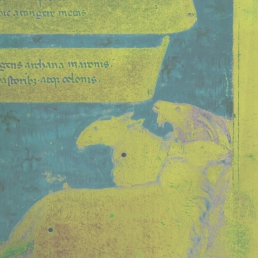 hic atingere metas
gens archana maronis
pastorib; atq; colonis